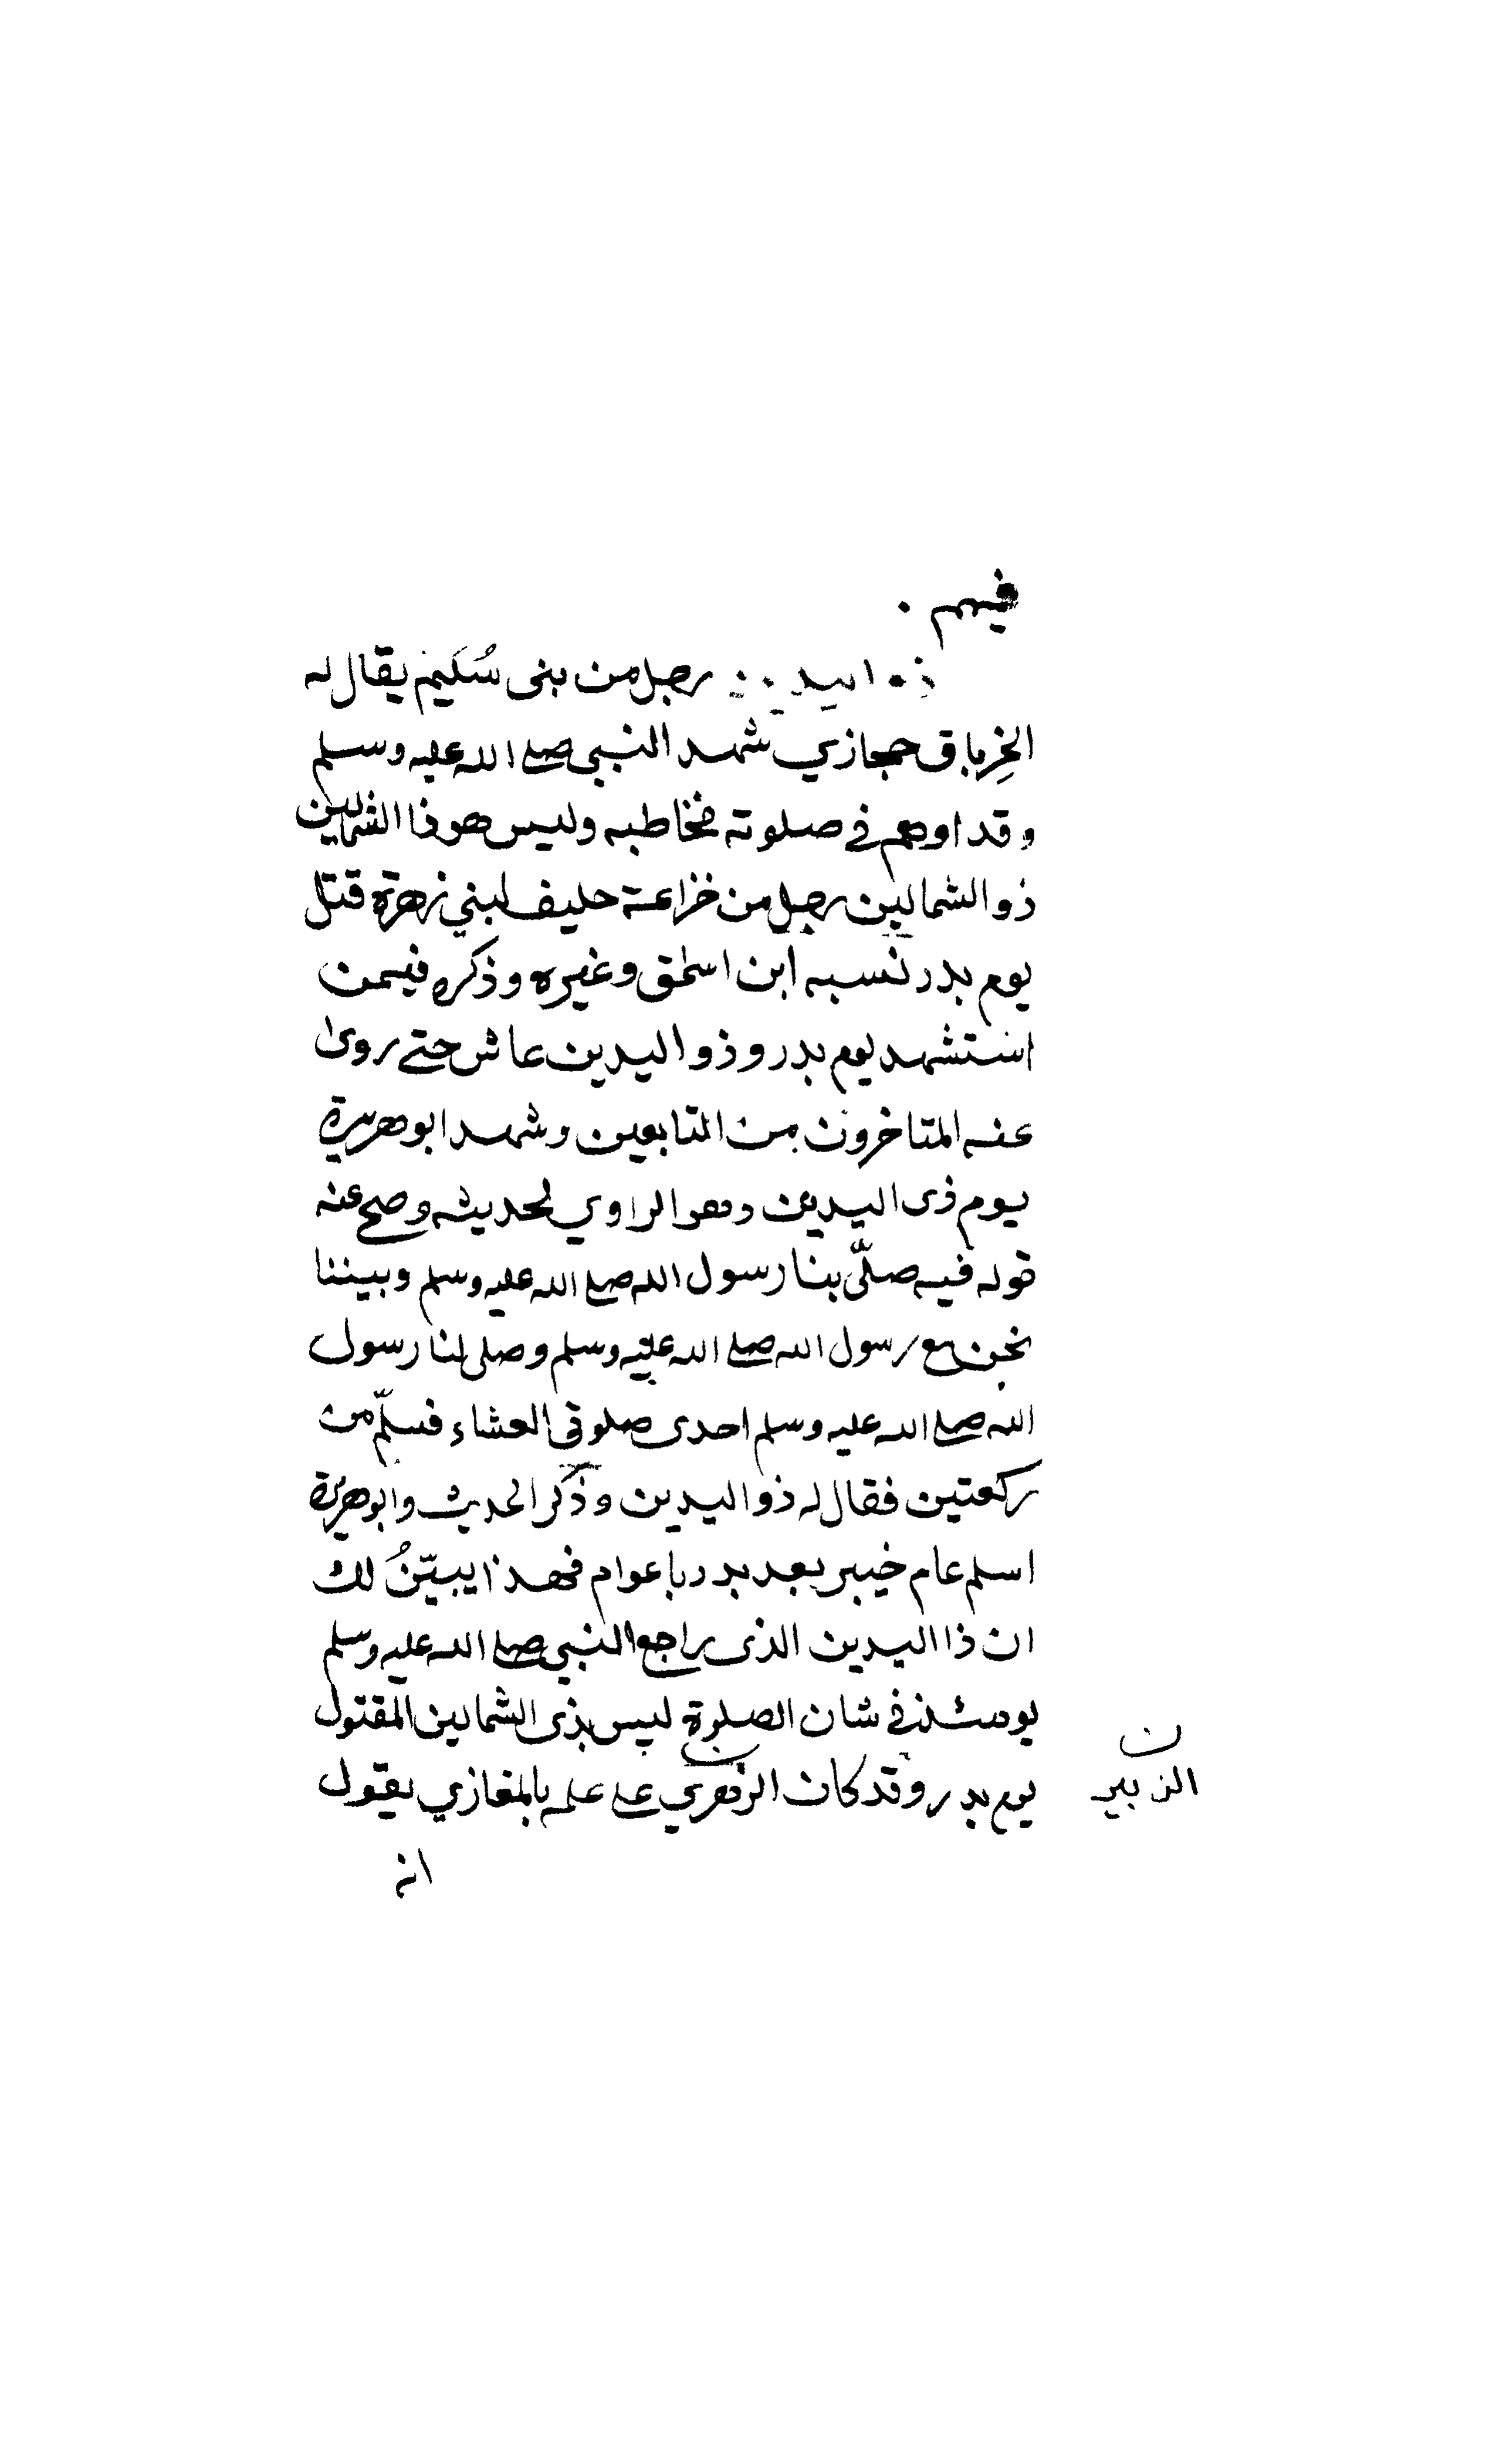 فيهم .
ذو اليدين رجل من بنى سُلَيم يقال له
الخِرباق حجازي شهد النبي صلى الله عليه وسلم
وقد اوهم في صلوته فخاطبه وليس هو ذا الشمالين
ذو الشمالين رجل من خزاعة حليف لبني زهرة قتل
يوم بدر نسبه ابن اسحق وغيره وذكره فيمن
استشهد يوم بدر وذو اليدين عاش حتى روى
عنه المتاخرون من التابعين وشهد ابو هريرة
يوم ذى اليدين وهو الراوي لحديثه وصح عنه
قوله فيه صلّى بنا رسول الله صلى الله عليه وسلم وبيننا
نحن مع رسول الله صلى الله عليه وسلم وصلى لنا رسول
الله صلى الله عليه وسلم احدى صلوتي العشاء فسلّم من
ركعتين فقال له ذو اليدين وذكر الحديث وابو هريرة
اسلم عام خيبر بعد بدر باعوام فهذا يبيّنُ لك
ان ذا اليدين الذى راجع النبي صلى الله عليه وسلم
يومئذ في شان الصلوة ليس بذى الشمالين المقتول
يوم بدر وقد كان الزهري على علمه بالمغازي يقول
ن
الزبير
انه